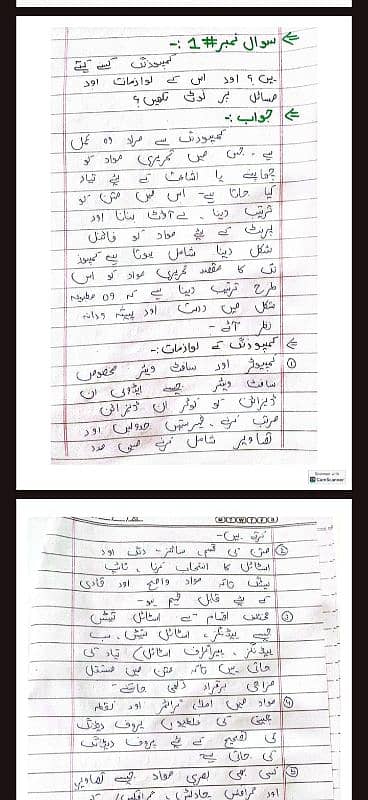 سوال نمبر #1 :-
کمپوزنگ کسے کہتے
ہیں ؟ اور اس کے لوازمات اور
مسائل پر نوٹ لکھیں؟
جواب :-
کمپوزنگ سے مراد وہ عمل
ہے۔ جس میں تحریری مواد کو
چھاپنے یا اشاعت کے لیے تیار
کیا جاتا ہے۔ اس میں متن کو
ترتیب دینا۔ لے آؤٹ بنانا اور
پرنٹ کے لیے مواد کو فائنل
شکل دینا شامل ہوتا ہے کمپوز
نگ کا مقصد تحریری مواد کو اس
طرح ترتیب دینا ہے کہ وہ مطبوعہ
شکل میں درست اور پیشہ ورانہ
نظر آئے -
کمپوزنگ کے لوازمات:-
① کمپیوٹر اور سافٹ ویئر مخصوص
سافٹ ویئر جیسے ایڈوبی ان
ڈیزائن
مرتب کرنے۔ فہرستیں جدولیں اور
تصاویر شامل کرنے میں مدد
Scanned with
CamScanner
M T W T F S
کرتے ہیں-
② متن کی قسم سائز۔ رنگ اور
اسٹائل کا انتخاب کرنا۔
تاکہ مواد واضح اور قاری
کے لیے قابل فہم ہو-
③ مختلف اقسام کے اسٹائل شیٹس
جیسے ہیڈنگز، اسٹائل شیٹس، سب
ہیڈنگز، پیراگراف اسٹائل) تیار کی
جاتی ہیں تاکہ متن میں مستقل
مزاجی برقرار رکھی جاسکے-
④ مواد میں املا، گرائمر اور نقطہ
چینی کی غلطیوں پروف ریڈنگ
کی تصحیح کے لیے پروف ریڈنگ
کی جاتی ہے
⑤ کسی بھی بصری مواد جیسے تصاویر
اور